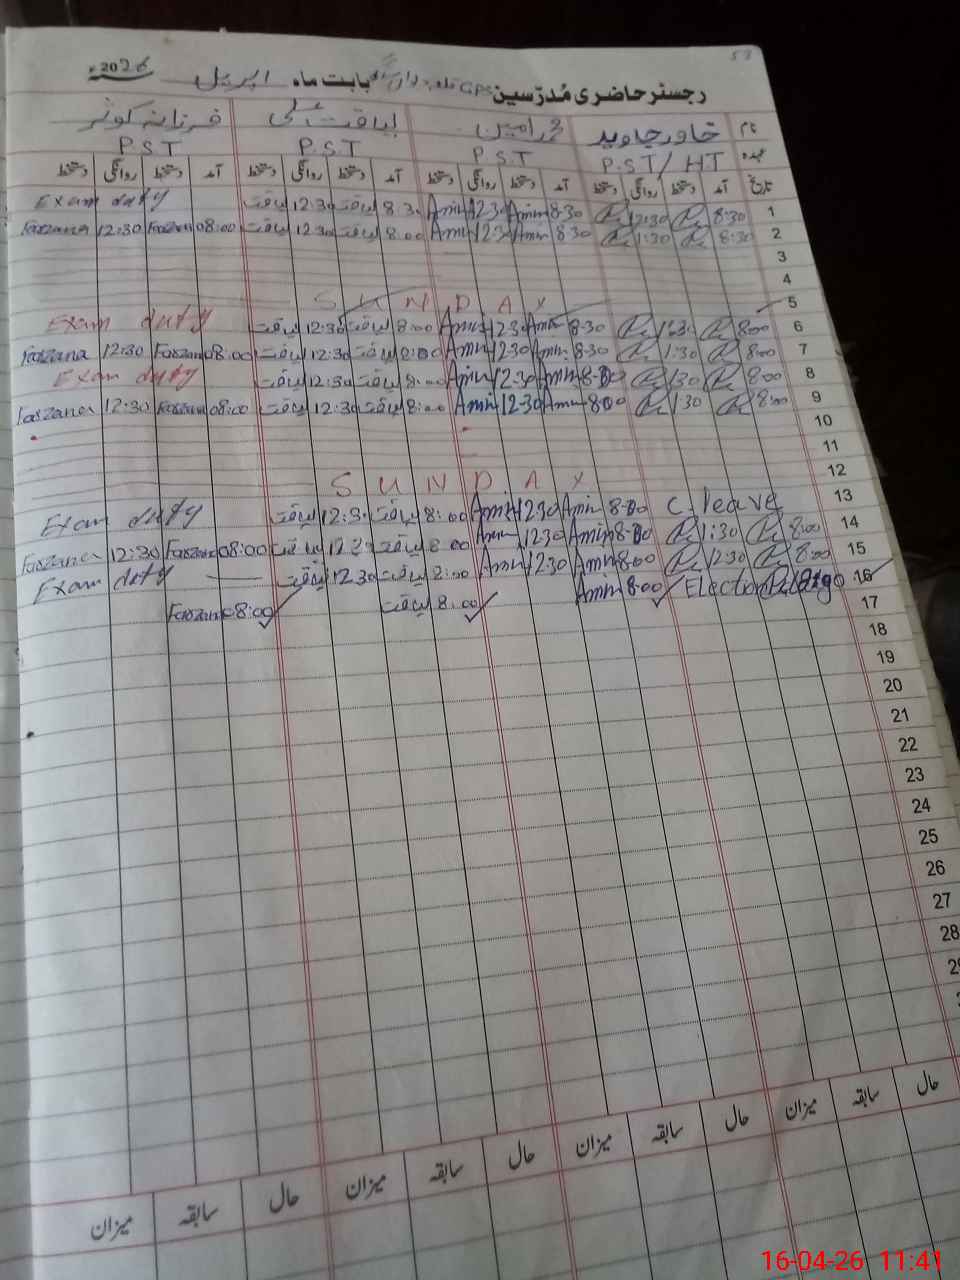 53
رجسٹر حاضری مُدرّسین GPS بابت ماہ اپریل 2026ء
نام خاور جاوید محمد امین لیاقت علی فرزانہ کوثر
عہدہ P.S.T / HT P.S.T P.S.T P.S.T
تاریخ آمد دستخط روانگی دستخط آمد دستخط روانگی دستخط آمد دستخط روانگی دستخط آمد دستخط روانگی دستخط
1 8:30 12:30 8-30 Amin 12-30 Amin 8:30 لیاقت 12:30 لیاقت Exam duty
2 8:30 1:30 8:30 Amin 12:30 Amin 8:00 لیاقت 12:30 لیاقت 08:00 Farzana 12:30 Farzana
3
4
5 SUNDAY
6 8:00 1:30 8-30 Amin 12-30 Amin 8:00 لیاقت 12:30 لیاقت Exam duty
7 8:00 1:30 8-30 Amin 12-30 Amin 8:00 لیاقت 12:30 لیاقت 08:00 Farzana 12:30 Farzana
8 8:00 1:30 8-00 Amin 12-30 Amin 8:00 لیاقت 12:30 لیاقت Exam duty
9 8:00 1:30 8-00 Amin 12-30 Amin 8:00 لیاقت 12:30 لیاقت 08:00 Farzana 12:30 Farzana
10
11
12 SUNDAY
13 C. leave 8-00 Amin 12-30 Amin 8:00 لیاقت 12:30 لیاقت Exam duty
14 8:00 1:30 8-00 Amin 12-30 Amin 8:00 لیاقت 12:30 لیاقت 08:00 Farzana 12:30 Farzana
15 8:00 12:30 8:00 Amin 12-30 Amin 8:00 لیاقت 12:30 لیاقت Exam duty
16 Election 8:00 Amin 8:00 لیاقت 8:00 Farzana
17
18
19
20
21
22
23
24
25
26
27
28
حال سابقہ میزان حال سابقہ میزان حال سابقہ میزان حال سابقہ میزان
16-04-26 11:41